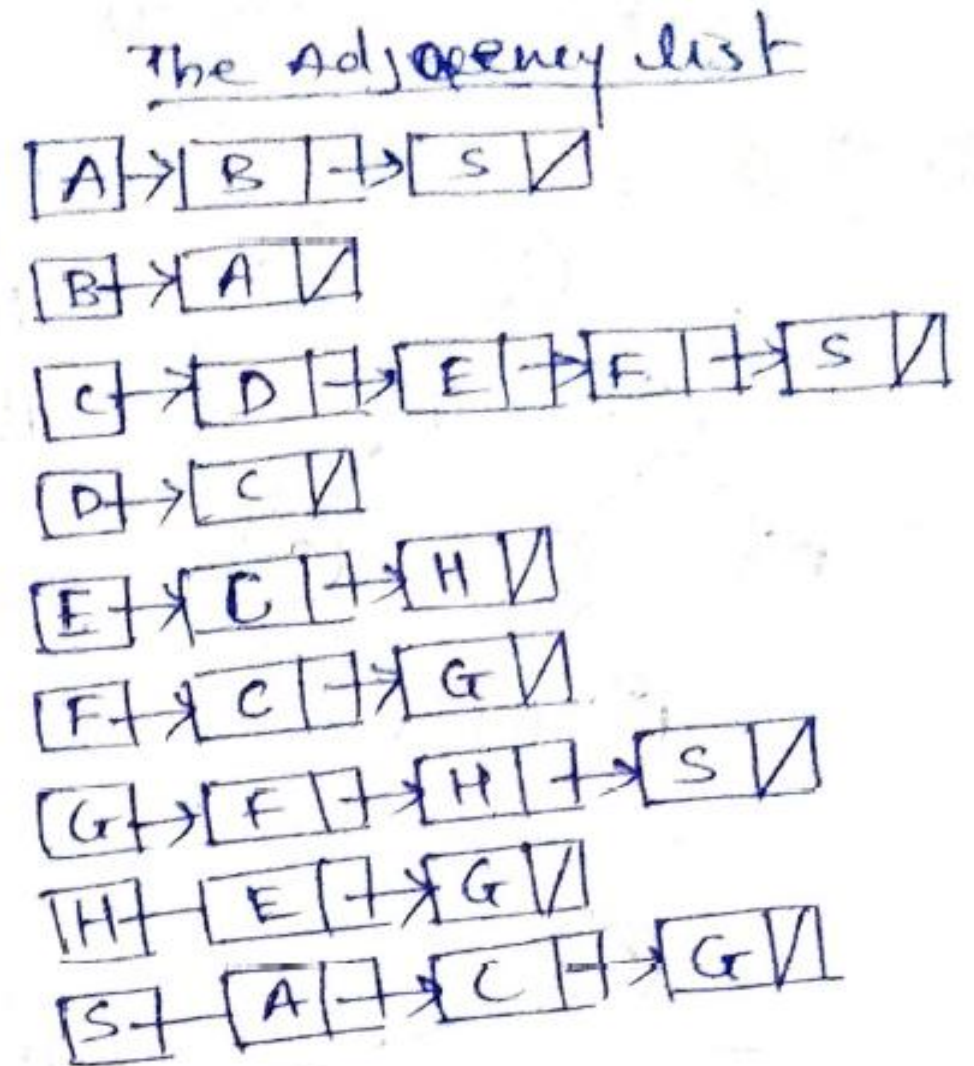 The Adjacency list
A → B → S
B → A
C → D → E → F → S
D → C
E → C → H
F → C → G
G → F → H → S
H E → G
S A → C → G